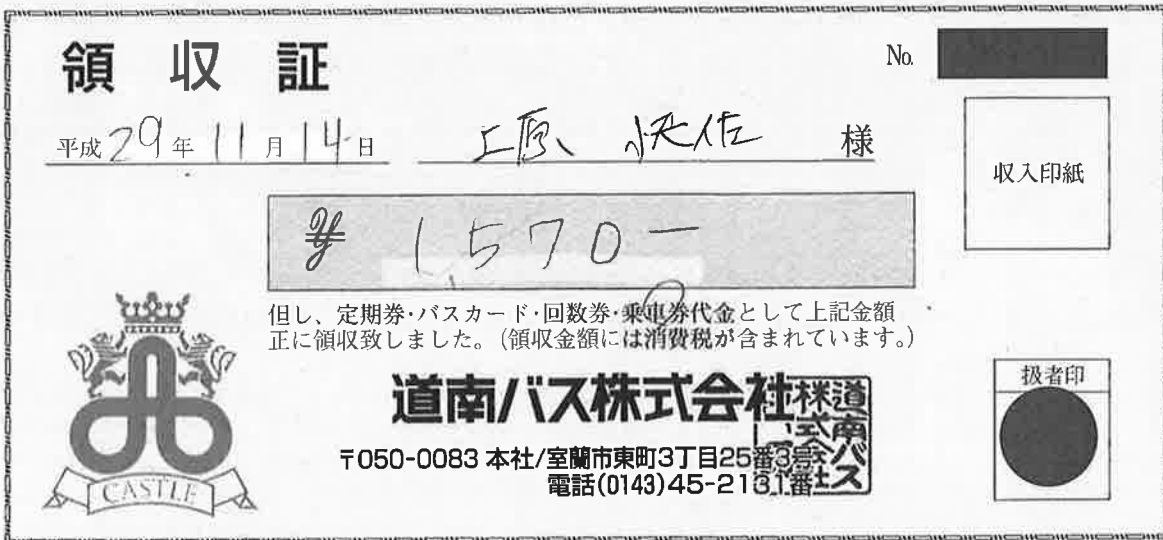 領収証
No.
平成29年11月14日 上原 快佐 様
収入印紙
¥ 1570-
但し、定期券・バスカード・回数券・乗車券代金として上記金額
正に領収致しました。(領収金額には消費税が含まれています。)
扱者印
道南バス株式会社
道南バス株式会社
〒050-0083 本社/室蘭市東町3丁目25番3号
電話(0143)45-2131番
CASTLE